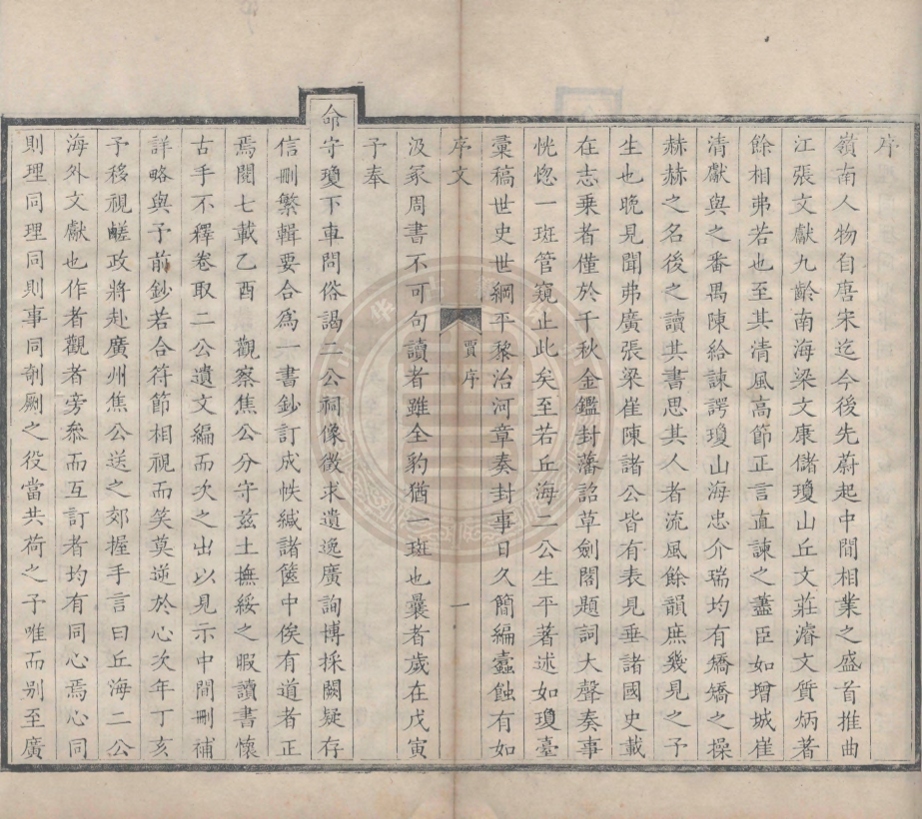 序
嶺南人物自唐宋迄今後先蔚起中間相業之盛首推曲
江張文獻九齡南海梁文康儲瓊山丘文莊濬文質炳著
餘相弗若也至其清風高節正言直諫之藎臣如增城崔
清獻與之番禺陳給諫諤瓊山海忠介瑞均有矯矯之操
赫赫之名後之讀其書思其人者流風餘韻庶幾見之予
生也晚見聞弗廣張梁崔陳諸公皆有表見垂諸國史載
在志乘者僅於千秋金鑑封藩詔草劍閣題詞大聲奏事
恍惚一斑管窺止此矣至若丘海二公生平著述如瓊臺
彙稿世史世綱平黎治河章奏封事日久簡編蠹蝕有如
序文
賈序
一
汲冢周書不可句讀者雖全豹猶一斑也曩者歲在戊寅
予奉
命守瓊下車問俗謁二公祠像徴求遺逸廣詢博採闕疑存
信刪繁輯要合爲一書鈔訂成帙緘諸篋中俟有道者正
焉閱七載乙酉 觀察焦公分守兹土撫綏之暇讀書懷
古手不釋卷取二公遺文編而次之出以見示中間刪補
詳略與予前鈔若合符節相視而笑莫逆於心次年丁亥
予移視鹺政將赴廣州焦公送之郊握手言曰丘海二公
海外文獻也作者觀者旁叅而互訂者均有同心焉心同
則理同理同則事同剞劂之役當共荷之予唯而别至廣